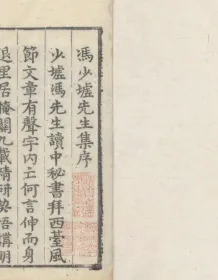 馮少墟先生集序
少墟馮先生讀中秘書拜西臺風
節文章有聲宇內亡何言伸而身
退里居掩關九載精研契悟講明